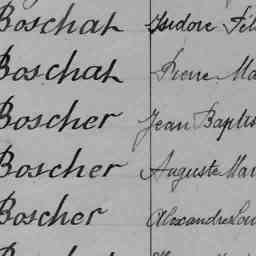 Boschat Isidore
Boschat Pierre
Boscher Jean Baptis
Boscher Auguste Mar
Boscher Alexandre Lou